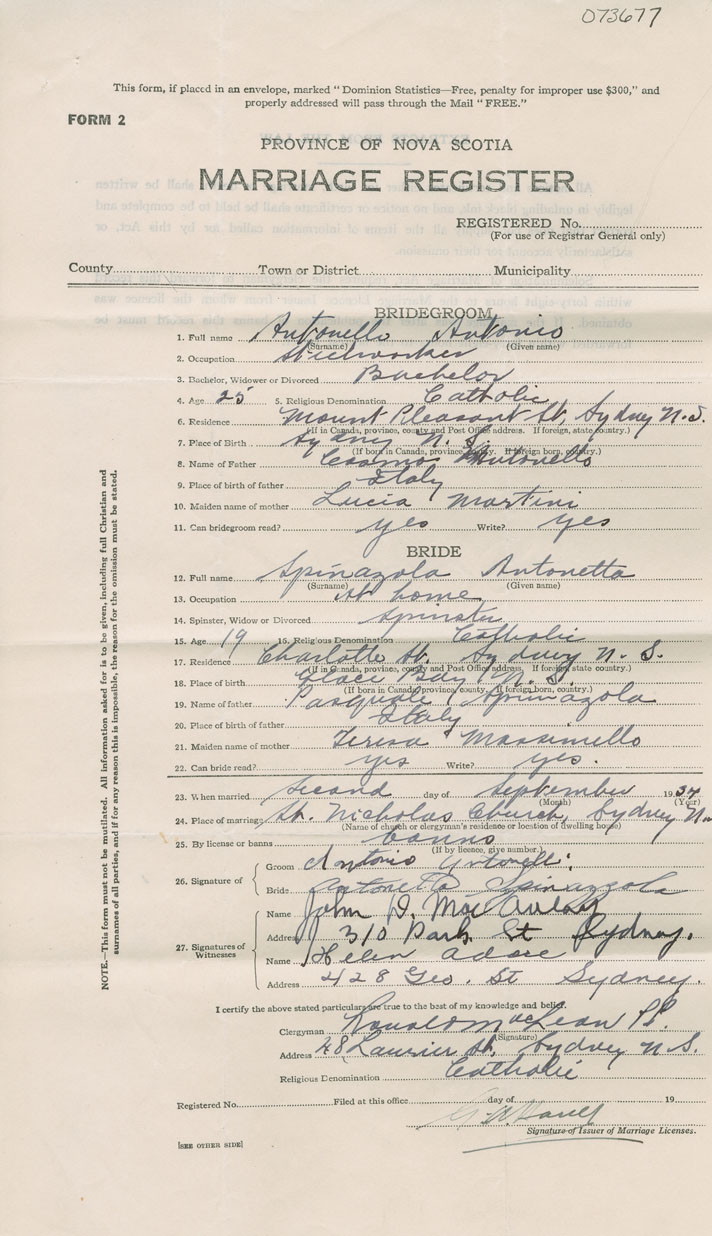 073677
This form, if placed in an envelope, marked "Dominion Statistics—Free, penalty for improper use $300," and
properly addressed will pass through the Mail "FREE."
FORM 2
PROVINCE OF NOVA SCOTIA
MARRIAGE REGISTER
REGISTERED No.
(For use of Registrar General only)
County Town or District Municipality
BRIDEGROOM
1. Full name Antonello Antonio
(Surname) (Given name)
2. Occupation Steelworker
3. Bachelor, Widower or Divorced Bachelor
4. Age 25 5. Religious Denomination Catholic
6. Residence Mount Pleasant St, Sydney N.S.
(If in Canada, province, county and Post Office address. If foreign, state country.)
7. Place of Birth Sydney N.S.
(If born in Canada, province, county. If foreign born, country.)
8. Name of Father Cosmo Antonello
9. Place of birth of father Italy
10. Maiden name of mother Lucia Martini
11. Can bridegroom read? yes Write? yes
BRIDE
12. Full name Spinazola Antonetta
(Surname) (Given name)
13. Occupation At home
14. Spinster, Widow or Divorced Spinster
15. Age 19 15. Religious Denomination Catholic
17. Residence Charlotte St. Sydney N. S.
(If in Canada, province, county and Post Office address. If foreign, state country.)
18. Place of birth Glace Bay N. S.
(If born in Canada, province, county. If foreign born, country.)
19. Name of father Pasquale Spinazola
20. Place of birth of father Italy
21. Maiden name of mother Teresa Massimello
22. Can bride read? yes Write? yes.
23. When married Second day of September 1934
(Month) (Year)
24. Place of marriage St. Nicholas Church, Sydney
(Name of church or clergyman's residence or location of dwelling house)
25. By license or banns banns
(If by licence, give number.)
26. Signature of
Groom Antonio Antonelli
Bride Antonetta Spinazzola
27. Signatures of Witnesses
Name John D. MacAulay
Address 310 Park St Sydney.
Name Helen Adore
Address 428 Geo. St Sydney.
I certify the above stated particulars are true to the best of my knowledge and belief.
Clergyman Ronald MacLean P.P.
(Signature)
Address 48 Laurier St, Sydney N.S.
Religious Denomination Catholic
Registered No. Filed at this office day of 19
Signature of Issuer of Marriage Licenses.
[SEE OTHER SIDE]
NOTE.—This form must not be mutilated. All information asked for is to be given, including full Christian and
surnames of all parties, and if for any reason this is impossible, the reason for the omission must be stated.